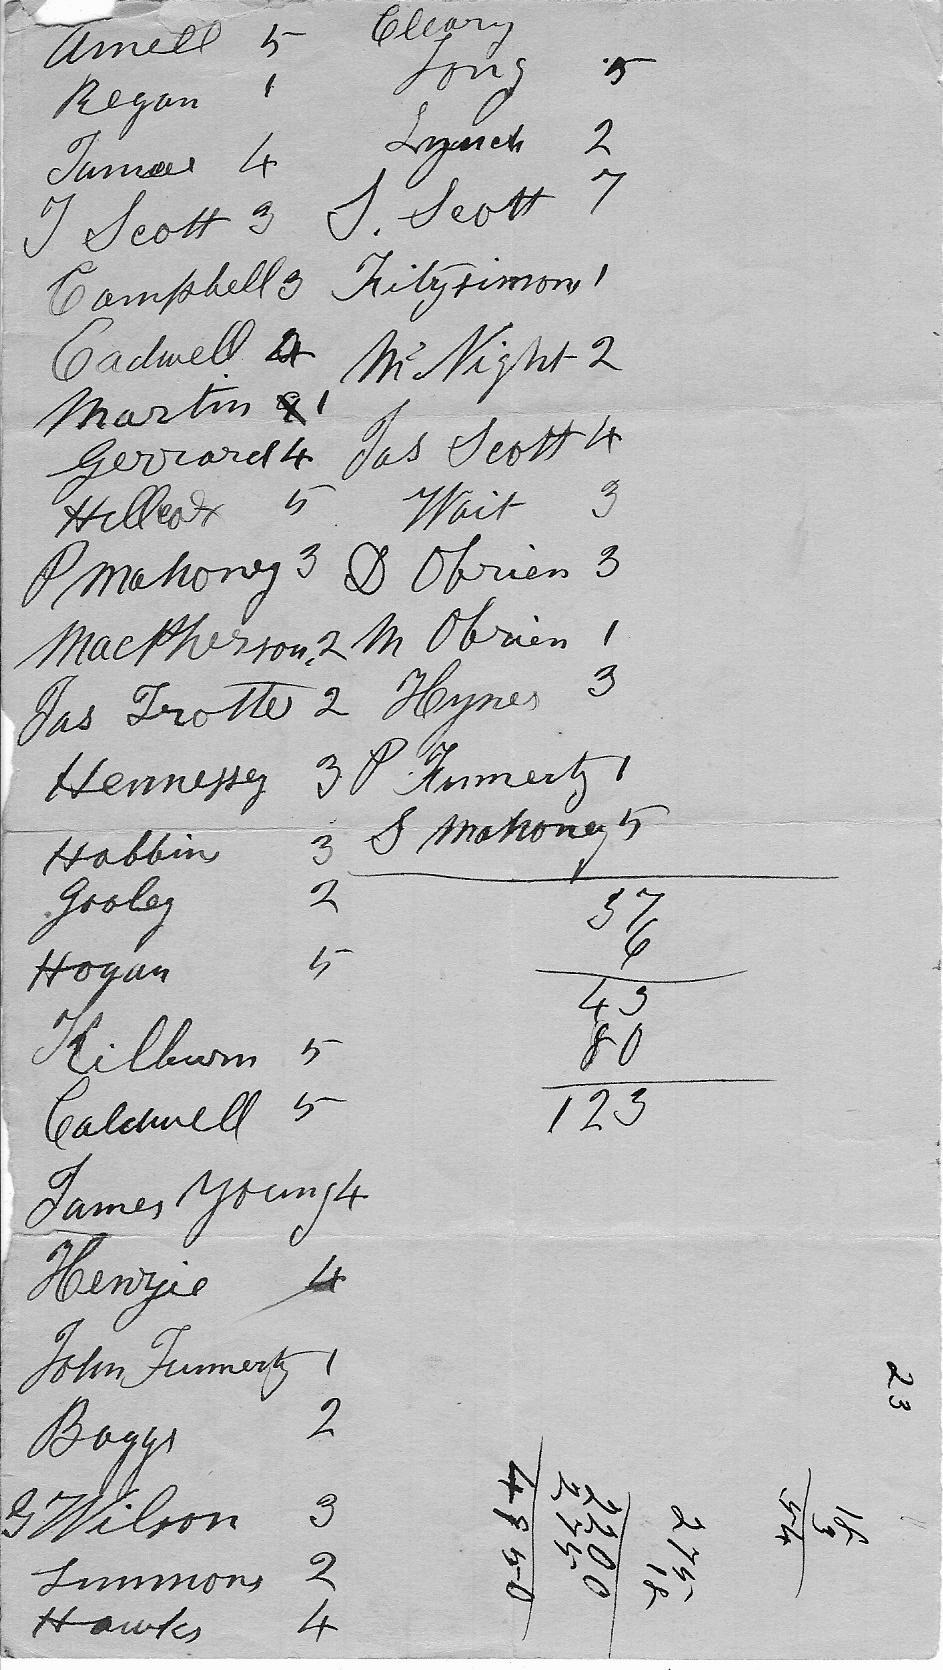 Arnell 5
Regan 1
James 4
J Scott 3
Campbell 3
Cadwell 4
Martin 1
Gerrard 4
Hillcox 5
P Mahoney 3
MacPherson 2
Jas Trotter 2
Hennessy 3
Hobbin 3
Gooley 2
Hogan 5
Kilburn 5
Caldwell 5
James Young 4
Henzie 4
John Fumerty 1
Boggs 2
G Wilson 3
Simmons 2
Hawks 4
Cleary
Long 5
Lynch 2
S. Scott 7
Fitzsimons 1
Mc Night 2
Jas Scott 4
Wait 3
D Obrien 3
M Obrien 1
Hynes 3
P. Fumerty 1
S Mahoney 5
37
6
43
80
123
23
18
3
54
275
18
2200
275
4950